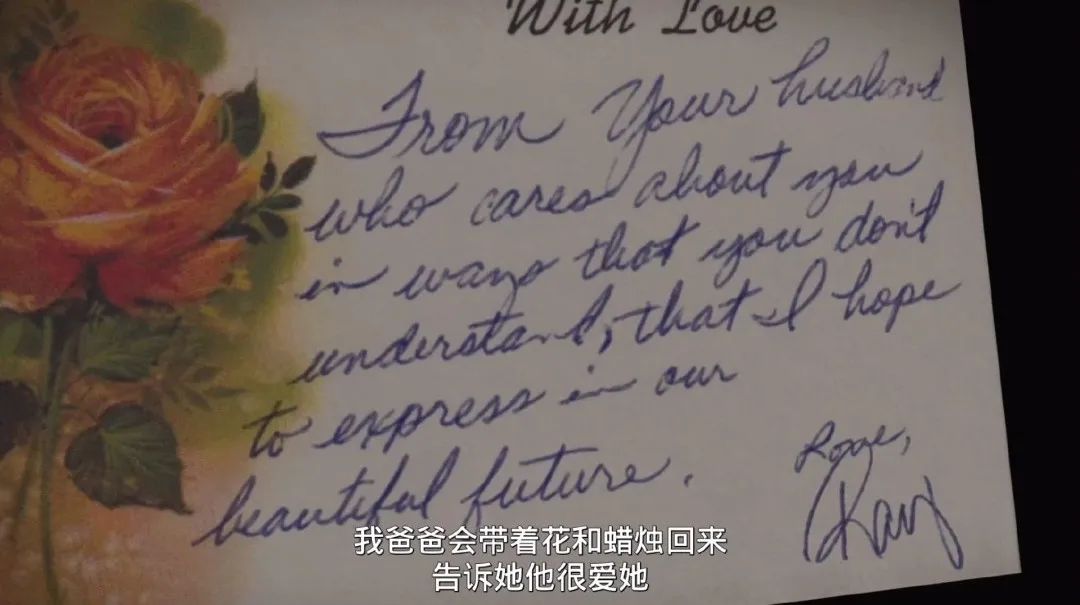 With Love
From Your husband
who cares about you
in ways that you don't
understand, that I hope
to express in our
beautiful future.
Love,
Ray
我爸爸会带着花和蜡烛回来
告诉她他很爱她